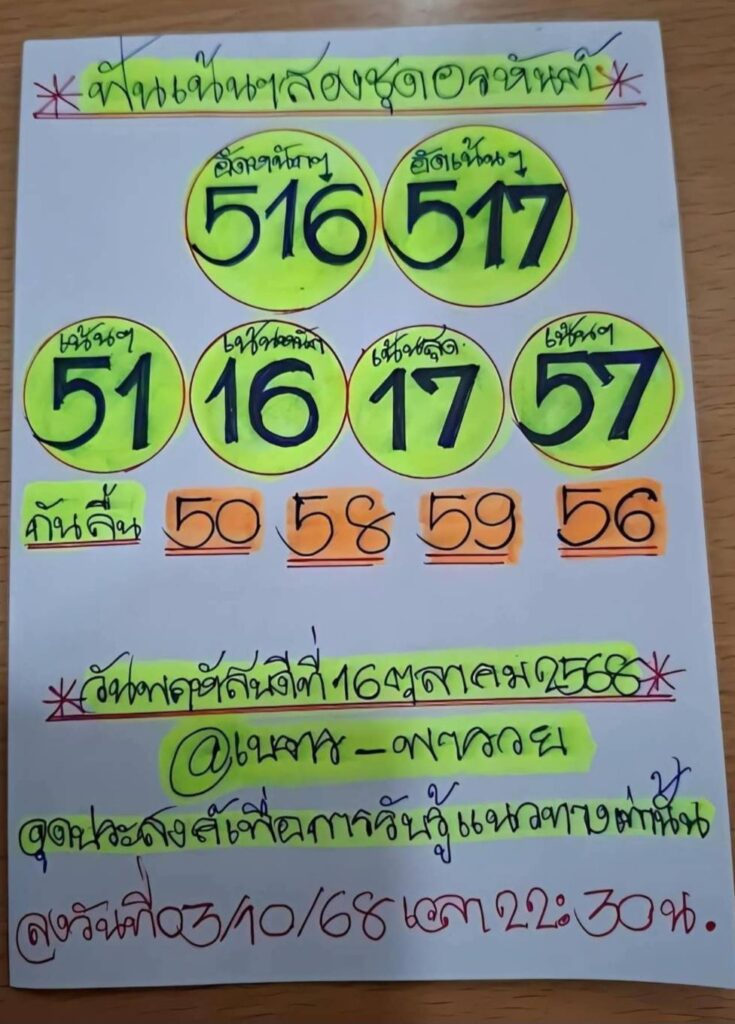 ฟันเน้นๆสองชุดอรหันต์
อัดหนักๆ อัดเน้นๆ
516 517
เน้นๆ เน้นหนัก เน้นสุด เน้นๆ
51 16 17 57
กันลื่น 50 58 59 56
วันพฤหัสบดีที่ 16 ตุลาคม 2568
พารวย
จุดประสงค์เพื่อการรับรู้แนวทางเท่านั้น
ลงวันที่ 03/10/68 เวลา 22:30 น.